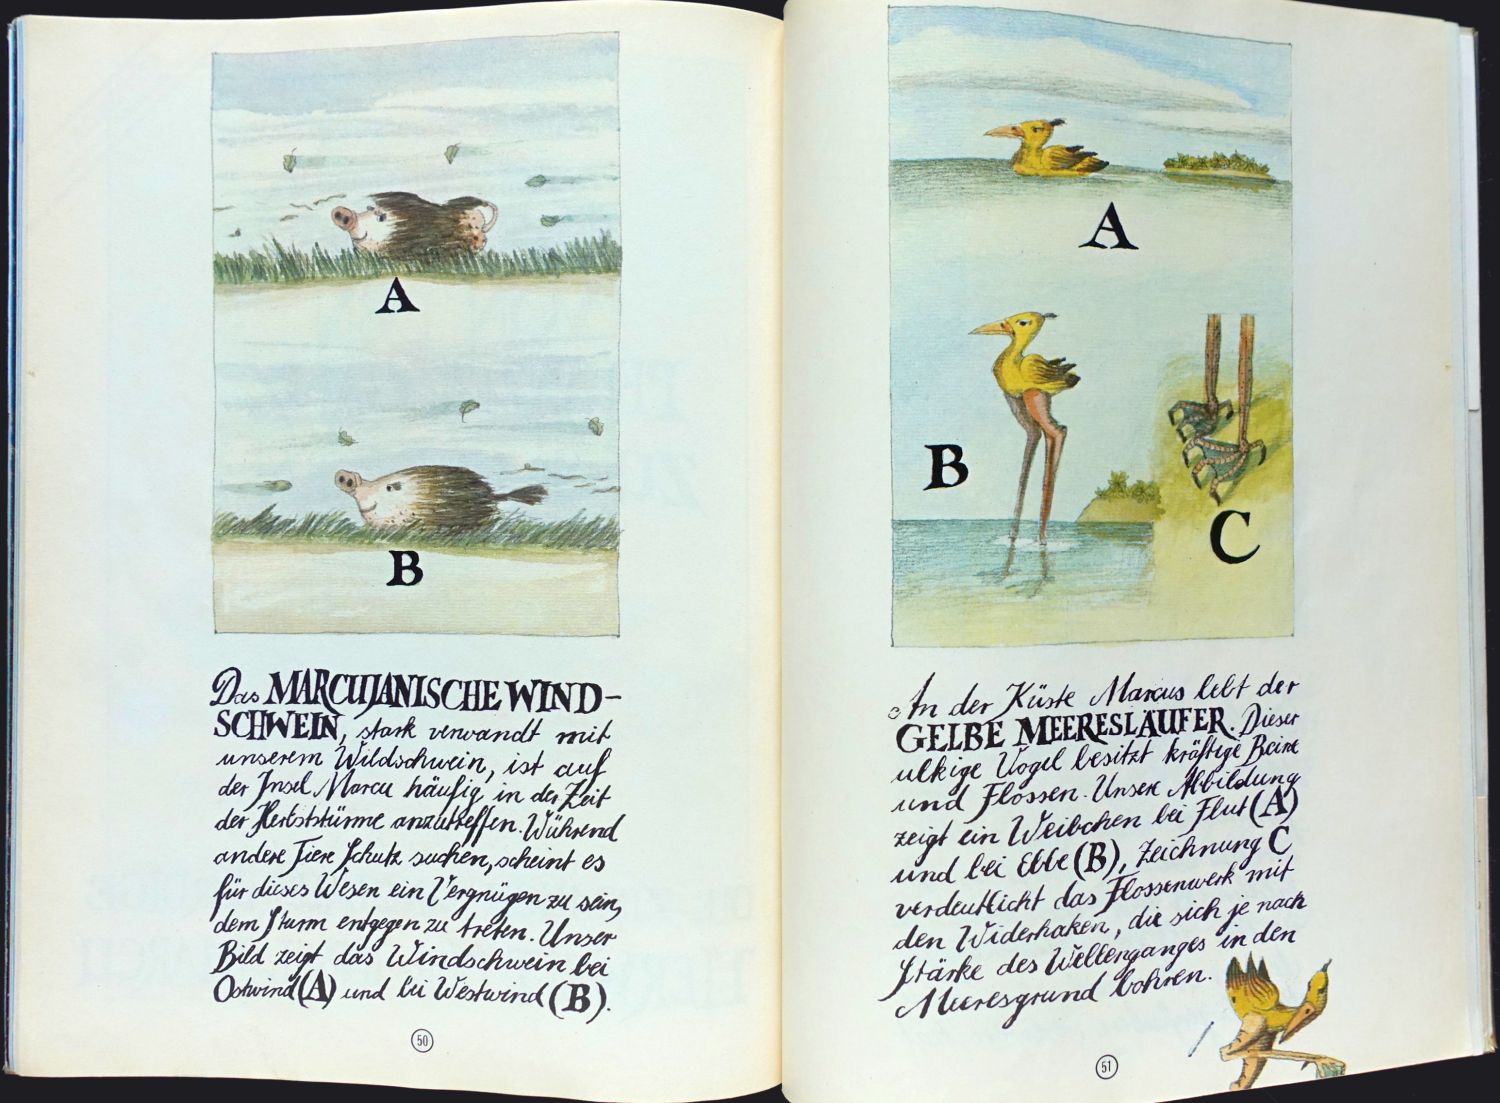 A
B
Das MARCUJANISCHE WIND-
SCHWEIN, stark verwandt mit
unserem Wildschwein, ist auf
der Insel Marcu häufig in der Zeit
der Herbststürme anzutreffen. Während
andere Tiere Schutz suchen, scheint es
für dieses Wesen ein Vergnügen zu sein,
dem Sturm entgegen zu treten. Unser
Bild zeigt das Windschwein bei
Ostwind (A) und bei Westwind (B).
50
A
B
C
An der Küste Marcus lebt der
GELBE MEERESLÄUFER. Dieser
ulkige Vogel besitzt kräftige Beine
und Flossen. Unsere Abbildung
zeigt ein Weibchen bei Flut (A)
und bei Ebbe (B), Zeichnung C
verdeutlicht das Flossenwerk mit
den Widerhaken, die sich je nach
Stärke des Wellenganges in den
Meeresgrund bohren.
51